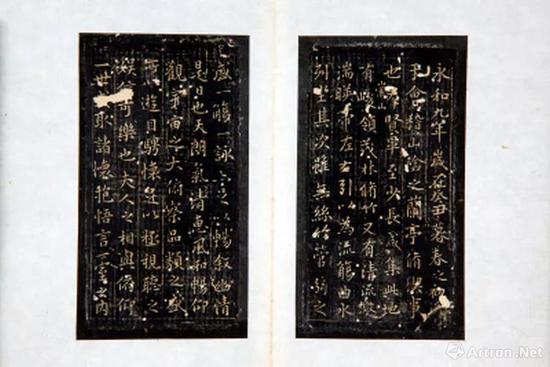 永和九年歲在癸丑暮春之初
于會稽山陰之蘭亭脩稧事
也羣賢畢至少長咸集此地
有崇山峻領茂林脩竹又有清流激
湍暎帶左右引以為流觴曲水
列坐其次雖無絲竹管弦之
盛一觴一詠亦足以暢叙幽情
是日也天朗氣清惠風和暢仰
觀宇宙之大俯察品類之盛
遊目騁懷足以極視聽之
娛信可樂也夫人之相與俯仰
一世取諸懷抱悟言一室之內
Artron.Net